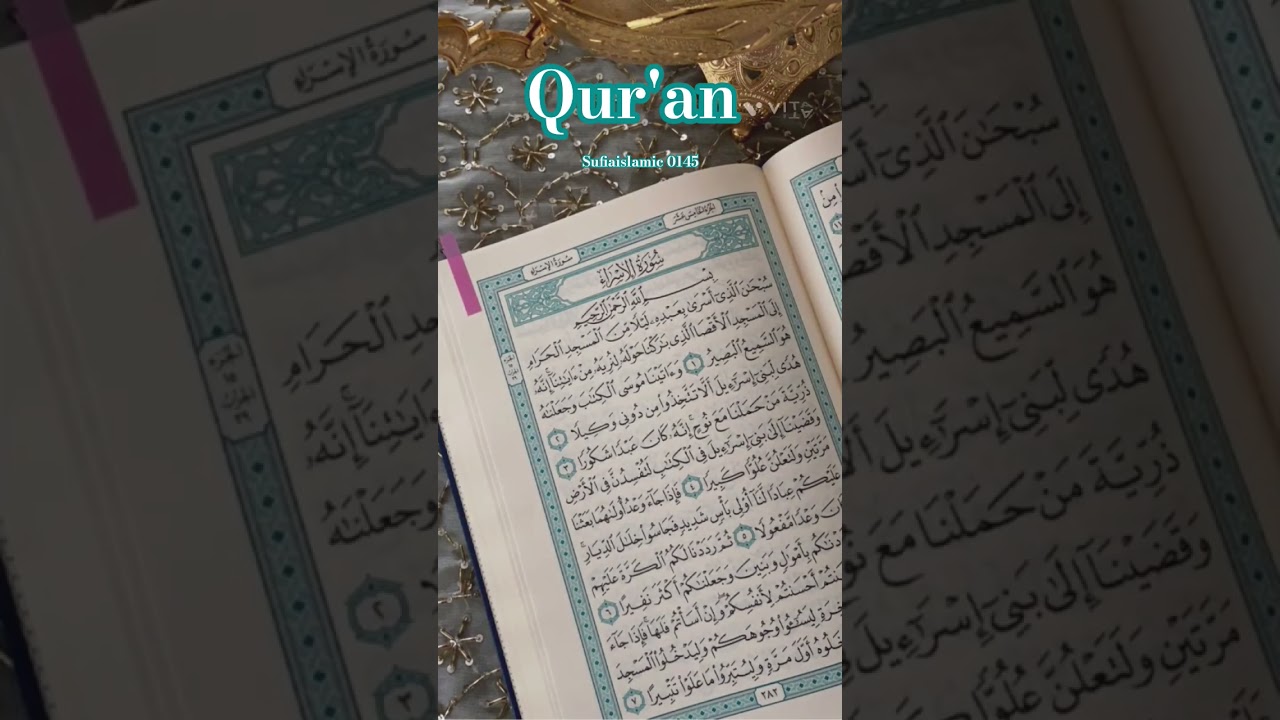 Qur'an
VITA
Sufiaislamic 0145
الجزء الخامس عشر
سُورَةُ الإِسْرَاءِ
سُورَةُ الإِسْرَاءِ
بِسْمِ ٱللَّهِ ٱلرَّحْمَٰنِ ٱلرَّحِيمِ
سُبْحَٰنَ ٱلَّذِىٓ أَسْرَىٰ بِعَبْدِهِۦ لَيْلًا مِّنَ ٱلْمَسْجِدِ ٱلْحَرَامِ
إِلَى ٱلْمَسْجِدِ ٱلْأَقْصَا ٱلَّذِى بَٰرَكْنَا حَوْلَهُۥ لِنُرِيَهُۥ مِنْ ءَايَٰتِنَآ إِنَّهُۥ
هُوَ ٱلسَّمِيعُ ٱلْبَصِيرُ ١ وَءَاتَيْنَا مُوسَى ٱلْكِتَٰبَ وَجَعَلْنَٰهُ
هُدًى لِّبَنِىٓ إِسْرَٰٓءِيلَ أَلَّا تَتَّخِذُوا۟ مِن دُونِى وَكِيلًا ٢
ذُرِّيَّةَ مَنْ حَمَلْنَا مَعَ نُوحٍ إِنَّهُۥ كَانَ عَبْدًا شَكُورًا ٣
وَقَضَيْنَآ إِلَىٰ بَنِىٓ إِسْرَٰٓءِيلَ فِى ٱلْكِتَٰبِ لَتُفْسِدُنَّ فِى ٱلْأَرْضِ
مَرَّتَيْنِ وَلَتَعْلُنَّ عُلُوًّا كَبِيرًا ٤ فَإِذَا جَآءَ وَعْدُ أُولَىٰهُمَا بَعَثْنَا
عَلَيْكُمْ عِبَادًا لَّنَآ أُو۟لِى بَأْسٍ شَدِيدٍ فَجَاسُوا۟ خِلَٰلَ ٱلدِّيَارِ
وَعْدًا مَّفْعُولًا ٥ ثُمَّ رَدَدْنَا لَكُمُ ٱلْكَرَّةَ عَلَيْهِمْ
بِأَمْوَٰلٍ وَبَنِينَ وَجَعَلْنَٰكُمْ أَكْثَرَ نَفِيرًا ٦
أَحْسَنتُمْ لِأَنفُسِكُمْ وَإِنْ أَسَأْتُمْ فَلَهَا فَإِذَا جَآءَ
لِيَسُۥٓـُٔوا۟ وُجُوهَكُمْ وَلِيَدْخُلُوا۟ ٱلْمَسْجِدَ
أَوَّلَ مَرَّةٍ وَلِيُتَبِّرُوا۟ مَا عَلَوْا۟ تَتْبِيرًا ٧
٢٨٢